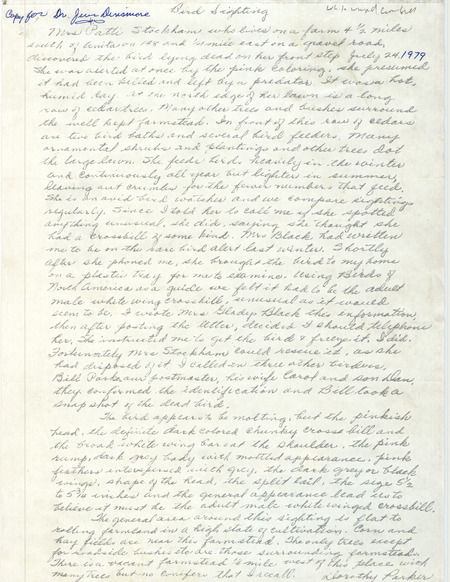 Copy for Dr. Jim Dinsmore
Bird Sighting
white winged crossbill
Mrs Patti Stockham who lives on a farm 4 1/2 miles
south of Anita on 148 and 1/2 mile east on a gravel road,
discovered the bird lying dead on her front step July 24, 1979
She was alerted at once by the pink coloring, she presumed
it had been killed and left by a predator. It was a hot,
humid day. At the north edge of her lawn is a long
row of cedar trees. Many other trees and bushes surround
the well kept farmstead. In front of this row of cedars
are two bird baths and several bird feeders. Many
ornamental shrubs and plantings and other trees dot
the large lawn. She feeds birds heavily in the winter
and continuously all year but lighter in summer,
leaving out crumbs for the fewer numbers that feed.
She is an avid bird watcher and we compare sightings
regularly. Since I told her to call me if she spotted
anything unusual, she did, saying she thought she
had a crossbill of some kind. Mrs Black had written
me to be on the rare bird alert last winter. Shortly
after she phoned me, she brought the bird to my home
on a plastic tray for me to examine. Using Birds of
North America as a guide we felt it had to be the adult
male white wing crossbill, unusual as it would
seem to be. I wrote Mrs Gladys Black this information,
then after posting the letter, decided I should telephone
her. She instructed me to get the bird & freeze it. I did.
Fortunately Mrs Stockham could rescue it, as she
had disposed of it. I called in three other birders,
Bill Parks our postmaster, his wife Carol and son Dan,
they confirmed the identification and Bill took a
snapshot of the dead bird.
The bird appears to molting, but the pinkish
head, the definite dark colored chunky crossed bill and
the broad white wing bar at the shoulder, the pink
rump, dark grey body with mottled appearance, pink
feathers interspersed with grey, the dark grey or black
wings, shape of the head, the split tail, the size 5 1/2
to 5 3/4 inches and the general appearance lead us to
believe it must be the adult male white winged crossbill.
The general area around this sighting is flat to
rolling farmland in a high state of cultivation. Corn and
hay fields are near this farmstead. The only trees except
for roadside bushes etc are those surrounding farmsteads.
There is a vacant farmstead 1/2 mile west of this place with
many trees but no conifers that I recall.
Dorothy Parkin